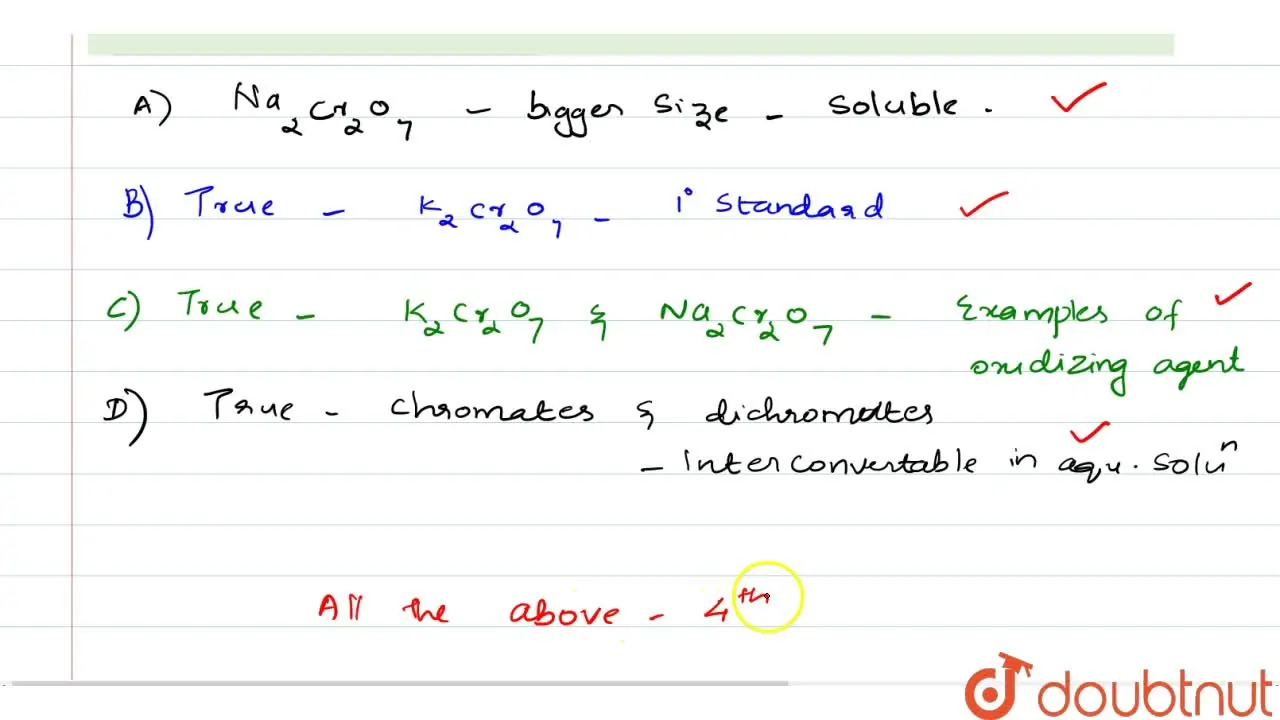 A) Na2Cr2O7 - bigger size - soluble. ✓
B) True - K2Cr2O7 - 1° standard ✓
C) True - K2Cr2O7 & Na2Cr2O7 - Examples of ✓
oxidizing agent
D) True - chromates & dichromates
- Interconvertable in aqu. soluⁿ ✓
All the above - 4th
doubtnut